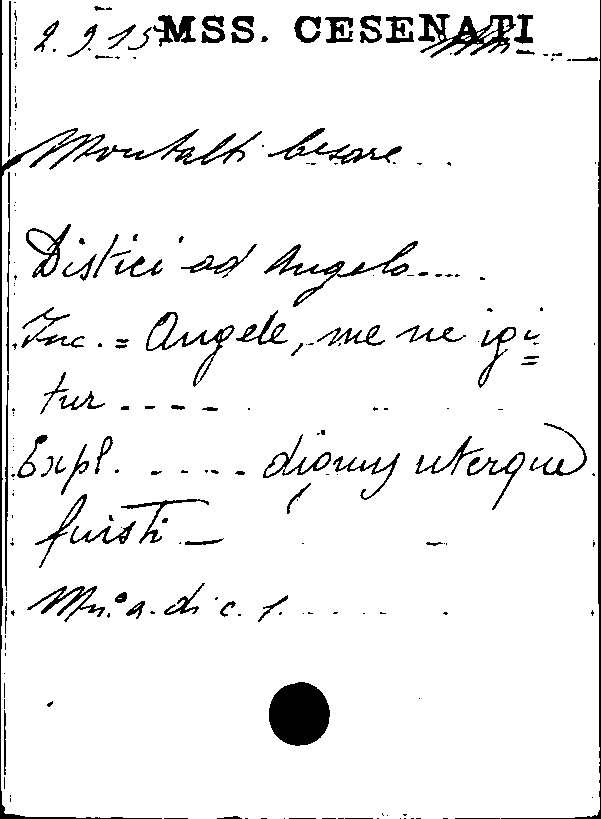 2. 9. 15 MSS. CESENATI
Montalti Cesare
Distici ad Angelo.....
Inc. = Angele, me ne igi=
tur ----
Expl. ..... dignus uterque
fuisti —
Mn.° a. di c. 1.